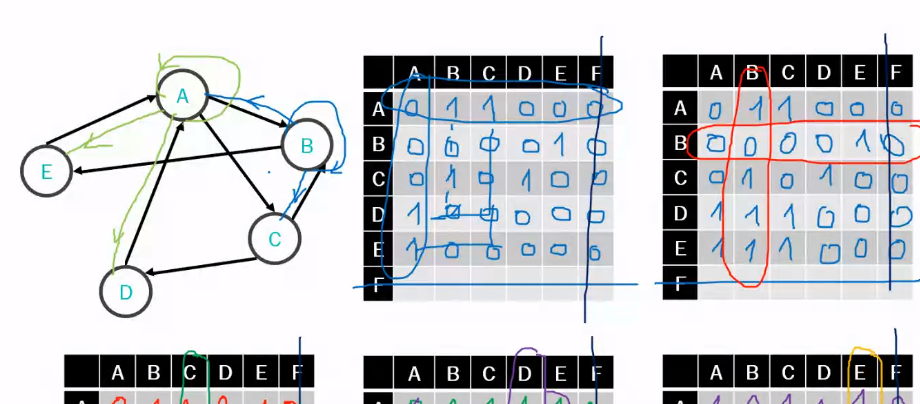 A
B
E
C
D
A B C D E F
A 0 1 1 0 0 0
B 0 0 0 0 1 0
C 0 1 0 1 0 0
D 1 0 0 0 0 0
E 1 0 0 0 0 0
F
A B C D E F
A 0 1 1 0 0 0
B 0 0 0 0 1 0
C 0 1 0 1 0 0
D 1 1 1 0 0 0
E 1 1 1 0 0 0
F
A B C D E F
A B C D E F
A B C D E F